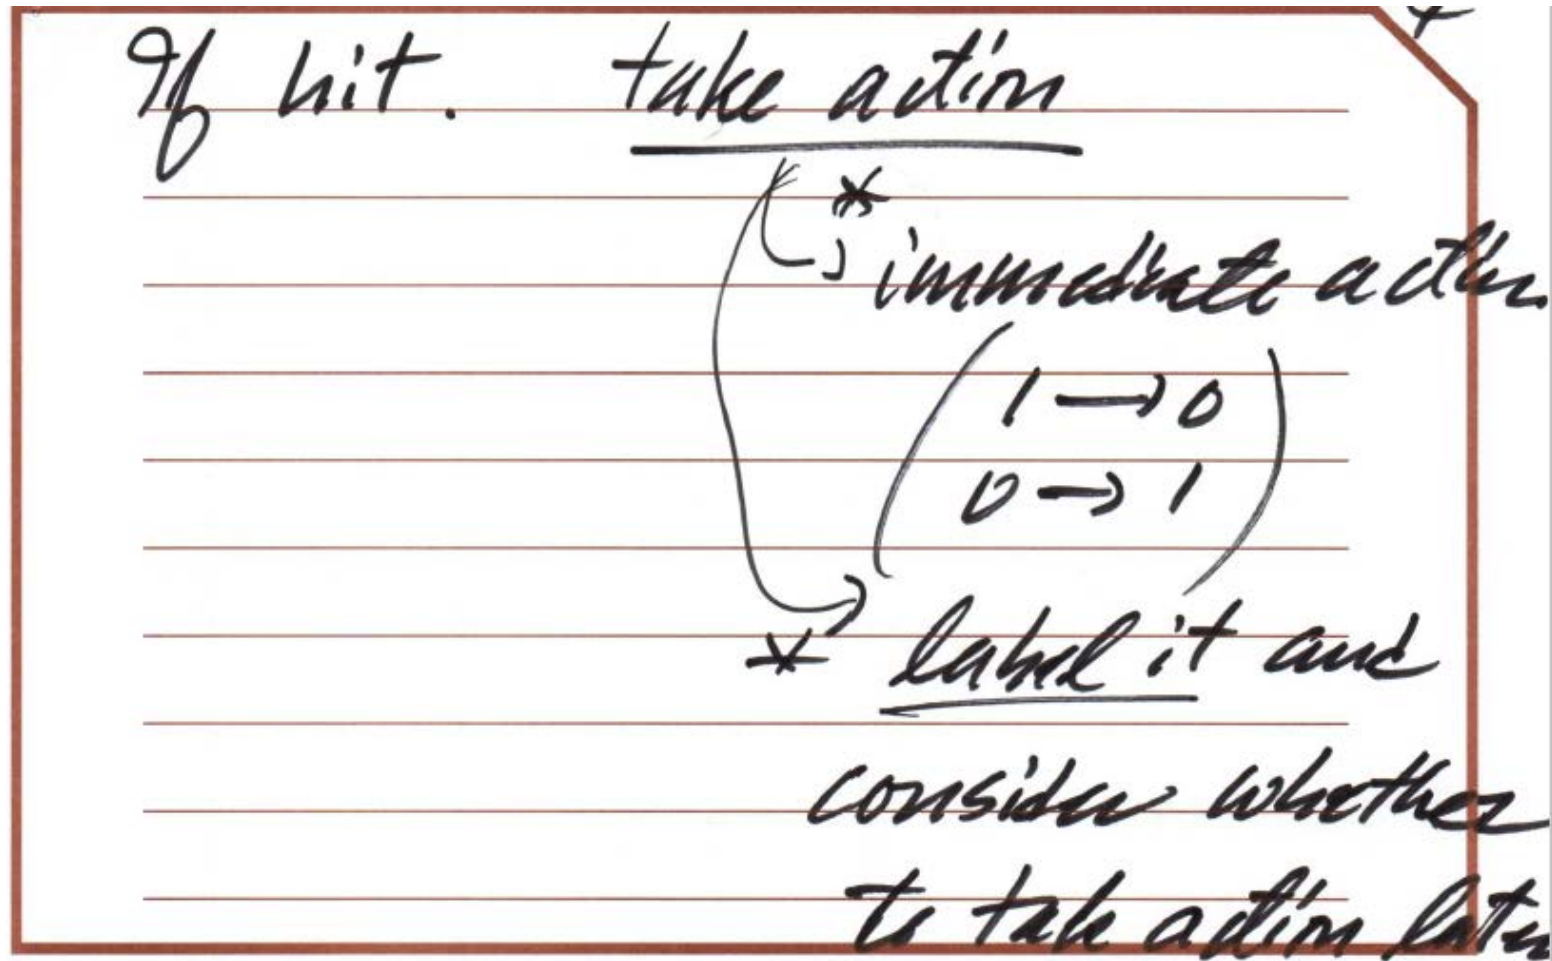 If hit. take action
*
immediate action
1 → 0
0 → 1
* label it and
consider whether
to take action later